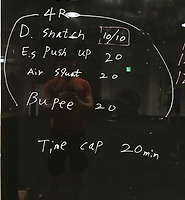 4R
D. snatch 10/10
E.S Push up 20
Air squat 20
Bupee 20
Time cap 20min